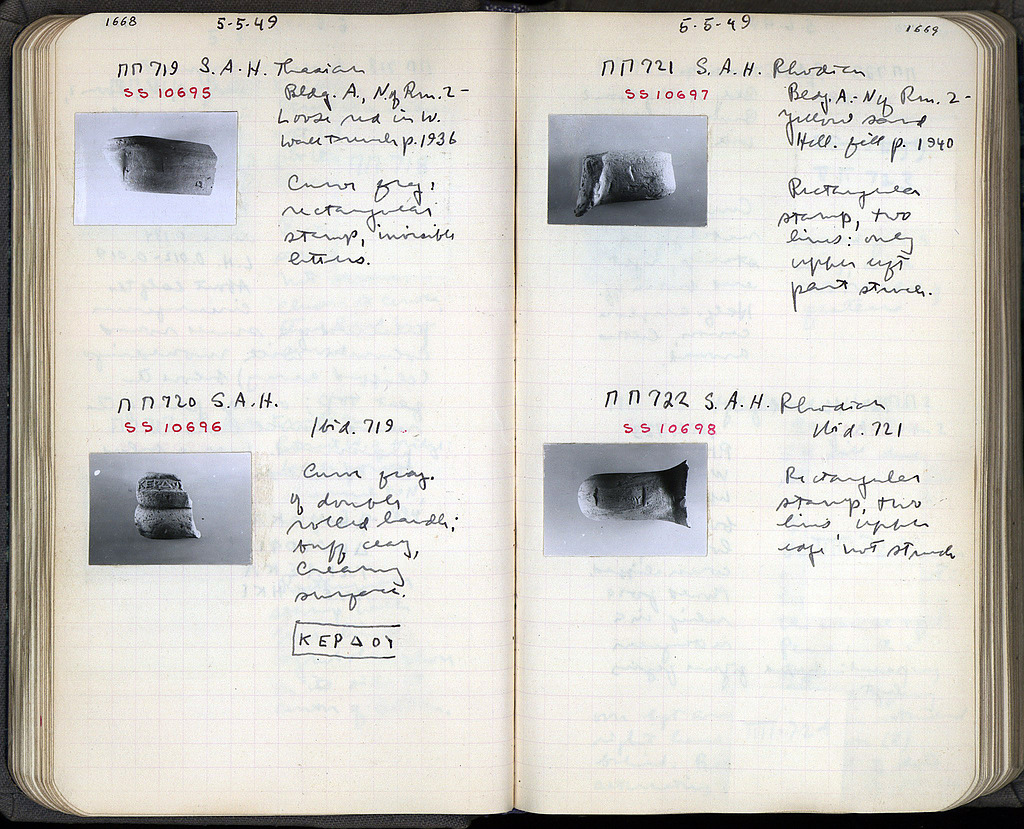 1668
5-5-49
ΠΠ 719 S.A.H. Thasian
SS 10695
Bldg. A., N of Rm. 2-
Loose red in W.
wall trench p. 1936
Curve frag;
rectangular
stamp, invisible
letters.
ΠΠ 720 S.A.H.
SS 10696
Ibid. 719.
Curve frag.
of double
rolled handle;
buff clay,
creamy
surface.
ΚΕΡΔΟΥ
5-5-49
1669
ΠΠ 721 S.A.H. Rhodian
SS 10697
Bldg. A.- N of Rm. 2-
Yellow sand
Hell. fill p. 1940
Rectangular
stamp, two
lines: only
upper left
part struck.
ΠΠ 722 S.A.H. Rhodian
SS 10698
Ibid. 721
Rectangular
stamp, two
lines upper
edge not struck